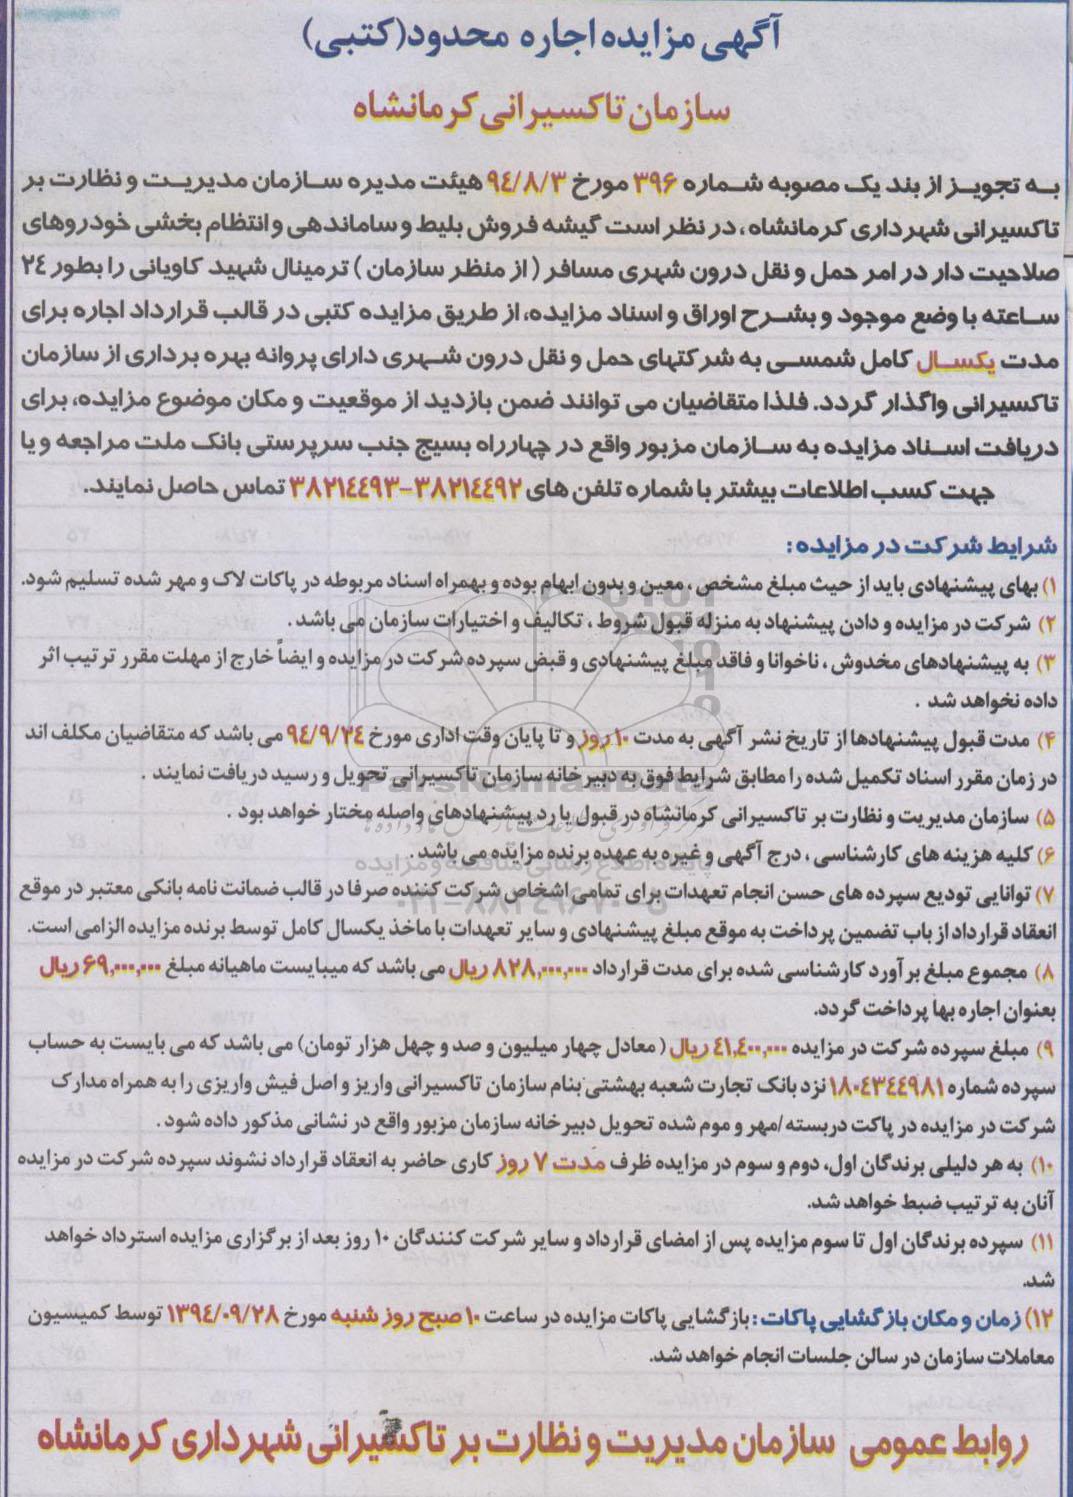 آگهی مزایده اجاره محدود(کتبی)
سازمان تاکسیرانی کرمانشاه
به تجویز از بند یک مصوبه شماره ۳۹۶ مورخ ۹٤/۸/۳ هیئت مدیره سازمان مدیریت و نظارت بر
تاکسیرانی شهرداری کرمانشاه ، در نظر است گیشه فروش بلیط و ساماندهی و انتظام بخشی خودروهای
صلاحیت دار در امر حمل و نقل درون شهری مسافر ( از منظر سازمان ) ترمینال شهید کاویانی را بطور ۲٤
ساعته با وضع موجود و بشرح اوراق و اسناد مزایده، از طریق مزایده کتبی در قالب قرارداد اجاره برای
مدت یکسال کامل شمسی به شرکتهای حمل و نقل درون شهری دارای پروانه بهره برداری از سازمان
تاکسیرانی واگذار گردد. فلذا متقاضیان می توانند ضمن بازدید از موقعیت و مکان موضوع مزایده، برای
دریافت اسناد مزایده به سازمان مزبور واقع در چهارراه بسیج جنب سرپرستی بانک ملت مراجعه و یا
جهت کسب اطلاعات بیشتر با شماره تلفن های ۳۸۲۱٤٤۹۲-۳۸۲۱٤٤۹۳ تماس حاصل نمایند.
شرایط شرکت در مزایده :
۱) بهای پیشنهادی باید از حیث مبلغ مشخص ، معین و بدون ابهام بوده و بهمراه اسناد مربوطه در پاکات لاک و مهر شده تسلیم شود.
۲) شرکت در مزایده و دادن پیشنهاد به منزله قبول شروط ، تکالیف و اختیارات سازمان می باشد .
۳) به پیشنهادهای مخدوش ، ناخوانا و فاقد مبلغ پیشنهادی و قبض سپرده شرکت در مزایده و ایضاً خارج از مهلت مقرر ترتیب اثر
داده نخواهد شد .
۴) مدت قبول پیشنهادها از تاریخ نشر آگهی به مدت ۱۰ روز و تا پایان وقت اداری مورخ ۹٤/۹/۲٤ می باشد که متقاضیان مکلف اند
در زمان مقرر اسناد تکمیل شده را مطابق شرایط فوق به دبیرخانه سازمان تاکسیرانی تحویل و رسید دریافت نمایند .
۵) سازمان مدیریت و نظارت بر تاکسیرانی کرمانشاه در قبول یا رد پیشنهادهای واصله مختار خواهد بود .
۶) کلیه هزینه های کارشناسی ، درج آگهی و غیره به عهده برنده مزایده می باشد .
۷) توانایی تودیع سپرده های حسن انجام تعهدات برای تمامی اشخاص شرکت کننده صرفا در قالب ضمانت نامه بانکی معتبر در موقع
انعقاد قرارداد از باب تضمین پرداخت به موقع مبلغ پیشنهادی و سایر تعهدات با ماخذ یکسال کامل توسط برنده مزایده الزامی است.
۸) مجموع مبلغ برآورد کارشناسی شده برای مدت قرارداد ۸۲۸,۰۰۰,۰۰۰ ریال می باشد که میبایست ماهیانه مبلغ ۶۹,۰۰۰,۰۰۰ ریال
بعنوان اجاره بها پرداخت گردد.
۹) مبلغ سپرده شرکت در مزایده ٤۱,٤۰۰,۰۰۰ ریال ( معادل چهار میلیون و صد و چهل هزار تومان) می باشد که می بایست به حساب
سپرده شماره ۱۸۰٤۳٤٤۹۸۱ نزد بانک تجارت شعبه بهشتی بنام سازمان تاکسیرانی واریز و اصل فیش واریزی را به همراه مدارک
شرکت در مزایده در پاکت دربسته /مهر و موم شده تحویل دبیرخانه سازمان مزبور واقع در نشانی مذکور داده شود .
۱۰) به هر دلیلی برندگان اول، دوم و سوم در مزایده ظرف مدت ۷ روز کاری حاضر به انعقاد قرارداد نشوند سپرده شرکت در مزایده
آنان به ترتیب ضبط خواهد شد.
۱۱) سپرده برندگان اول تا سوم مزایده پس از امضای قرارداد و سایر شرکت کنندگان ۱۰ روز بعد از برگزاری مزایده استرداد خواهد
شد.
۱۲) زمان و مکان بازگشایی پاکات : بازگشایی پاکات مزایده در ساعت ۱۰ صبح روز شنبه مورخ ۱۳۹٤/۰۹/۲۸ توسط کمیسیون
معاملات سازمان در سالن جلسات انجام خواهد شد.
روابط عمومی سازمان مدیریت و نظارت بر تاکسیرانی شهرداری کرمانشاه